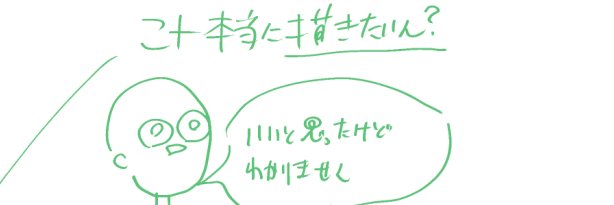 こtrail本当に描きたいん?
いいと思ったけど
わかりません